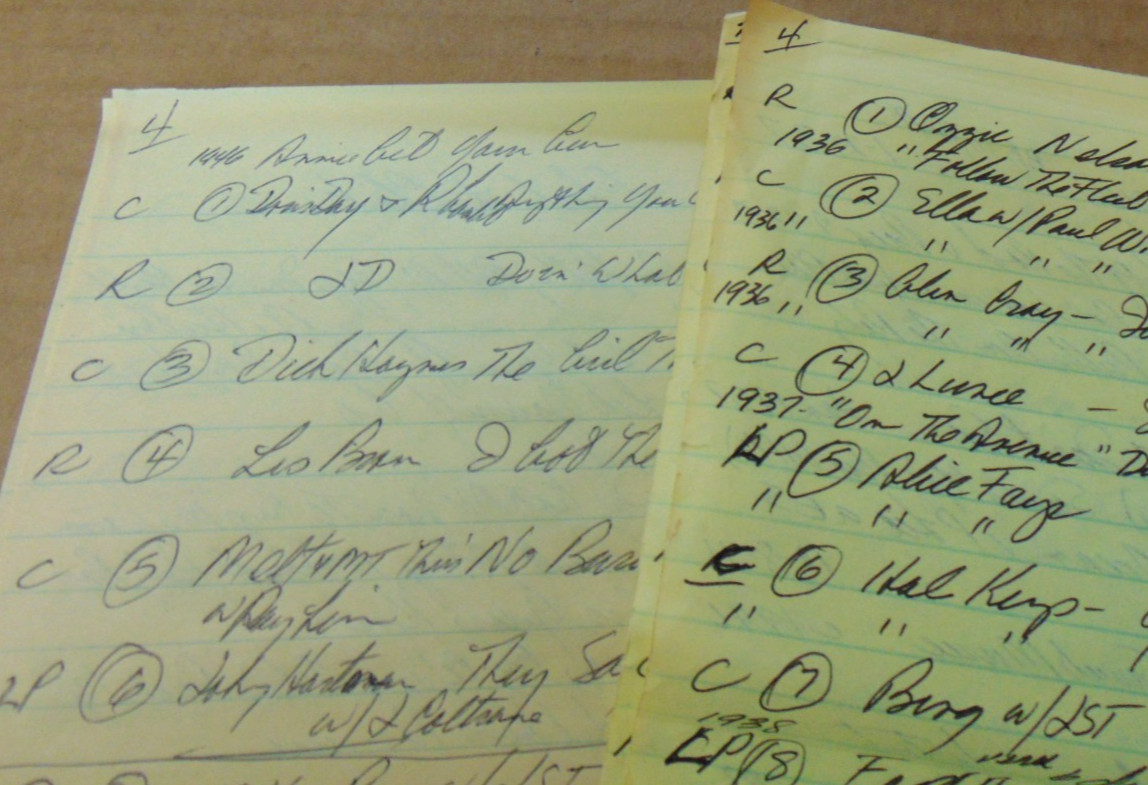 4
1946 Annie Get Your Gun
C ① Doris Day & R Anything You C
R ② JD Doin' What
C ③ Dick Haymes The Girl T
R ④ Les Brown I Got The
C ⑤ Mel Torme This No Busi
w/Ray
LP ⑥ Johnny Hartman They Sa
w/J Coltrane
4
R ① Ozzie Nelson
1936 "Follow The Fleet
C ② Ella w/Paul
1936 " " " "
R ③ Glen Gray –
1936 " " " "
C ④ J Lunce –
1937 - "On The Avenue"
LP ⑤ Alice Faye
" " "
C ⑥ Hal Kemp -
" " "
C ⑦ Bing w/JST
1938
LP ⑧